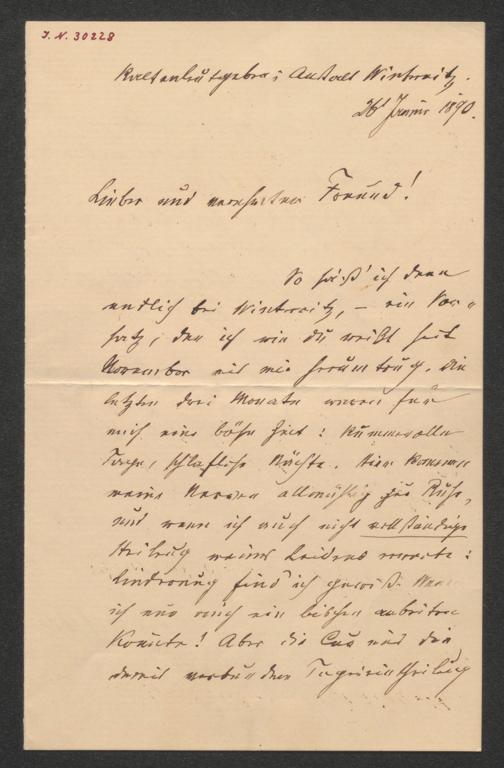 I. N. 30228
Kaltenleutgeben; Anstalt Winternitz.
26t Jänner 1890.
Lieber und verehrter Freund!
So säß' ich denn
endlich bei Winternitz, – ein Vor=
satz, den ich wie du weißt seit
November mit mir herumtrug. Die
letzten drei Monate waren für
mich eine böse Zeit: kummervolle
Tage, schlaflose Nächte. Hier kommen
meine Nerven allmählig zur Ruhe,
und wenn ich auch nicht vollständige
Heilung meines Leidens erwarte:
Linderung find' ich gewiß. Wenn
ich nur auch ein bischen arbeiten
könnte! Aber die Cur und die
damit verbundene Tageseintheilung